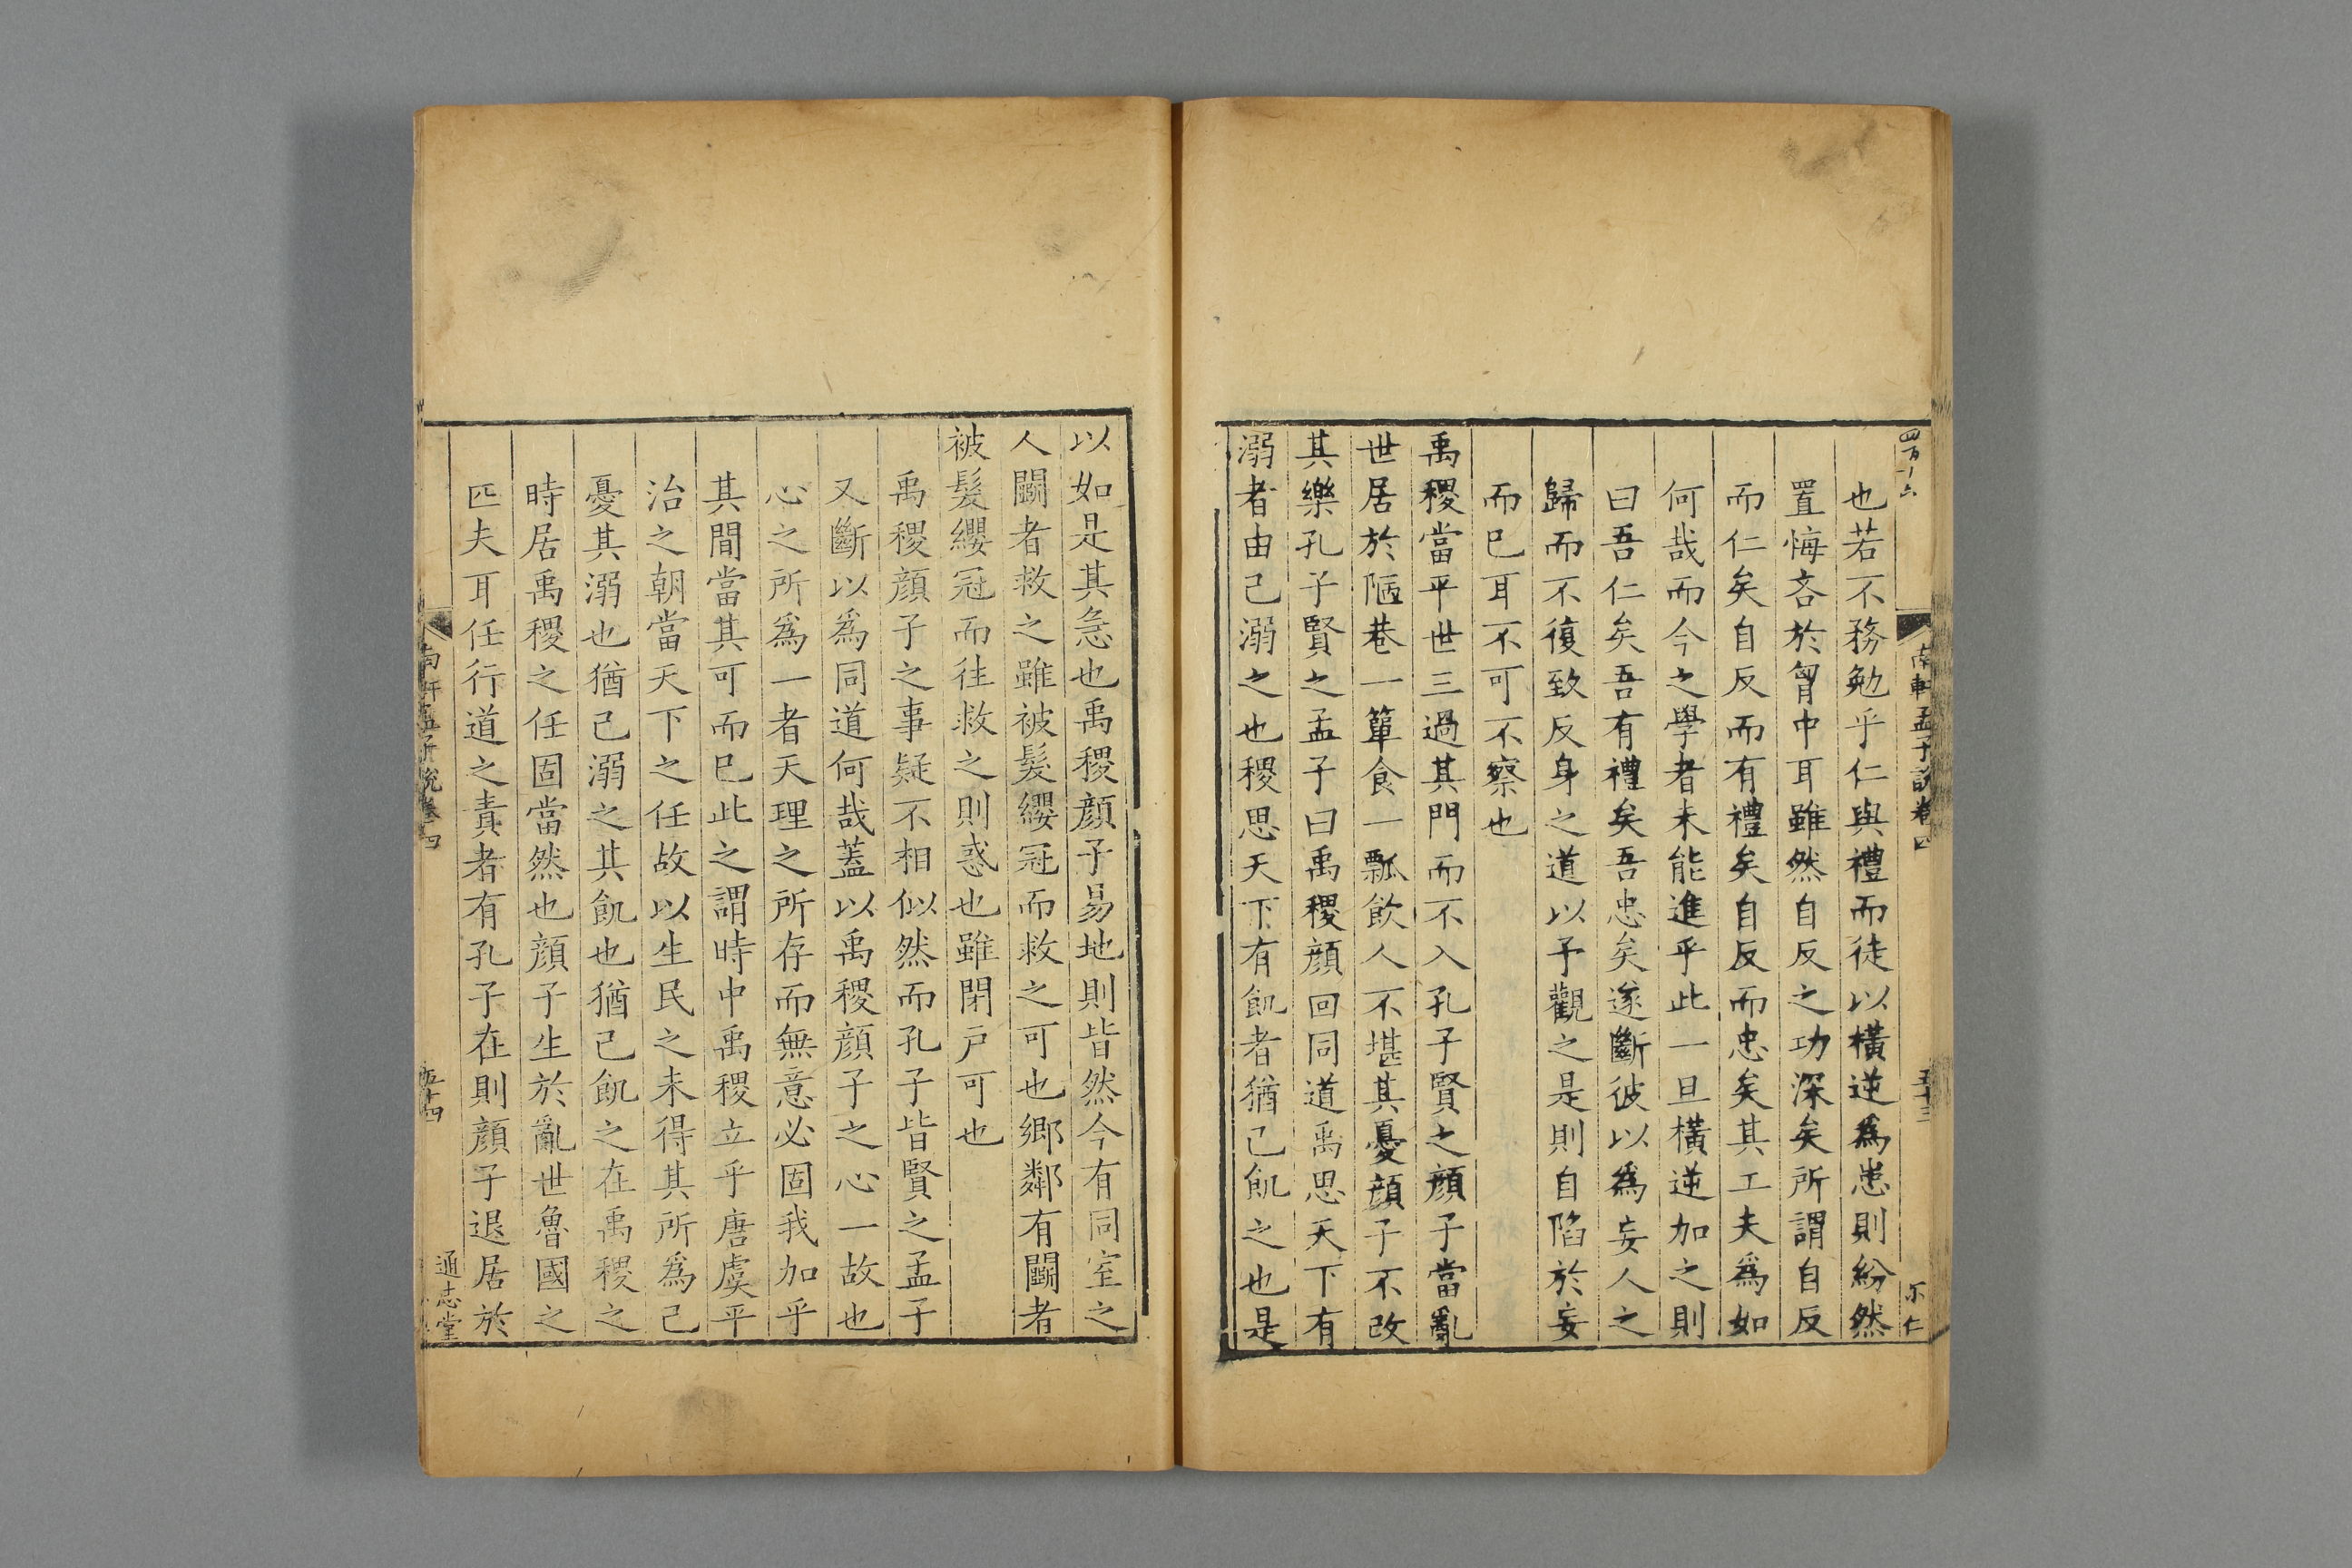 四百十六
南軒孟子說卷四
五十三
尔仁
也若不務勉乎仁與禮而徒以橫逆爲患則紛然
置悔吝於胷中耳雖然自反之功深矣所謂自反
而仁矣自反而有禮矣自反而忠矣其工夫爲如
何哉而今之學者未能進乎此一旦橫逆加之則
曰吾仁矣吾有禮矣吾忠矣遂斷彼以爲妄人之
歸而不復致反身之道以予觀之是則自陷於妄
而已耳不可不察也
禹稷當平世三過其門而不入孔子賢之顔子當亂
世居於陋巷一簞食一瓢飲人不堪其憂顔子不改
其樂孔子賢之孟子曰禹稷顔回同道禹思天下有
溺者由己溺之也稷思天下有飢者猶己飢之也是
以如是其急也禹稷顔子易地則皆然今有同室之
人鬬者救之雖被髮纓冠而救之可也鄉鄰有鬬者
被髮纓冠而往救之則惑也雖閉戸可也
禹稷顔子之事疑不相似然而孔子皆賢之孟子
又斷以爲同道何哉蓋以禹稷顔子之心一故也
心之所爲一者天理之所存而無意必固我加乎
其間當其可而已此之謂時中禹稷立乎唐虞平
治之朝當天下之任故以生民之未得其所爲己
憂其溺也猶己溺之其飢也猶己飢之在禹稷之
時居禹稷之任固當然也顔子生於亂世魯國之
匹夫耳任行道之責者有孔子在則顔子退居於
南軒孟子說卷四
五十四
通志堂